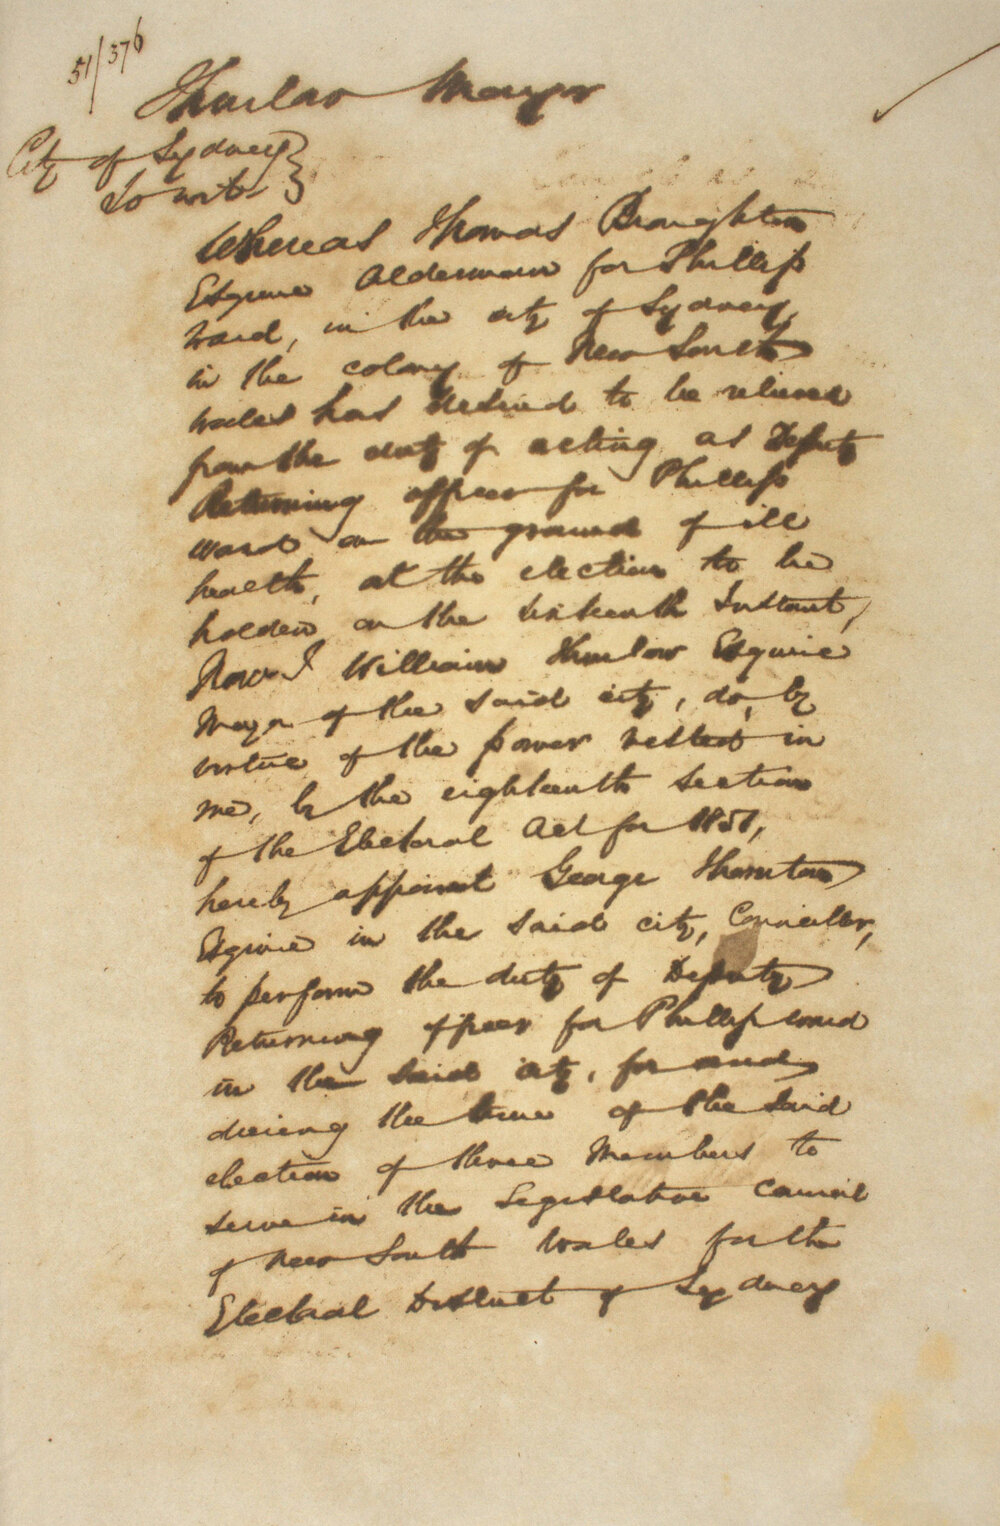 51/376
Thurlow Mayor
City of Sydney }
To wit }
Whereas Thomas Broughton
Esquire Alderman for Phillip
Ward, in the city of Sydney,
in the colony of New South
Wales has desired to be relieved
from the duty of acting as Deputy
Returning officer for Phillip
ward on the ground of ill
health, at the election to be
holden on the sixteenth Instant,
Now I William Thurlow Esquire
Mayor of the said city, do, by
virtue of the power vested in
me, by the eighteenth section
of the Electoral Act for 1851,
hereby appoint George Thornton
Esquire in the said city, Councillor,
to perform the duty of Deputy
Returning officer for Phillip ward
in the said city, for and
during the time of the said
election of three Members to
serve in the Legislative Council
of New South Wales for the
Electoral District of Sydney